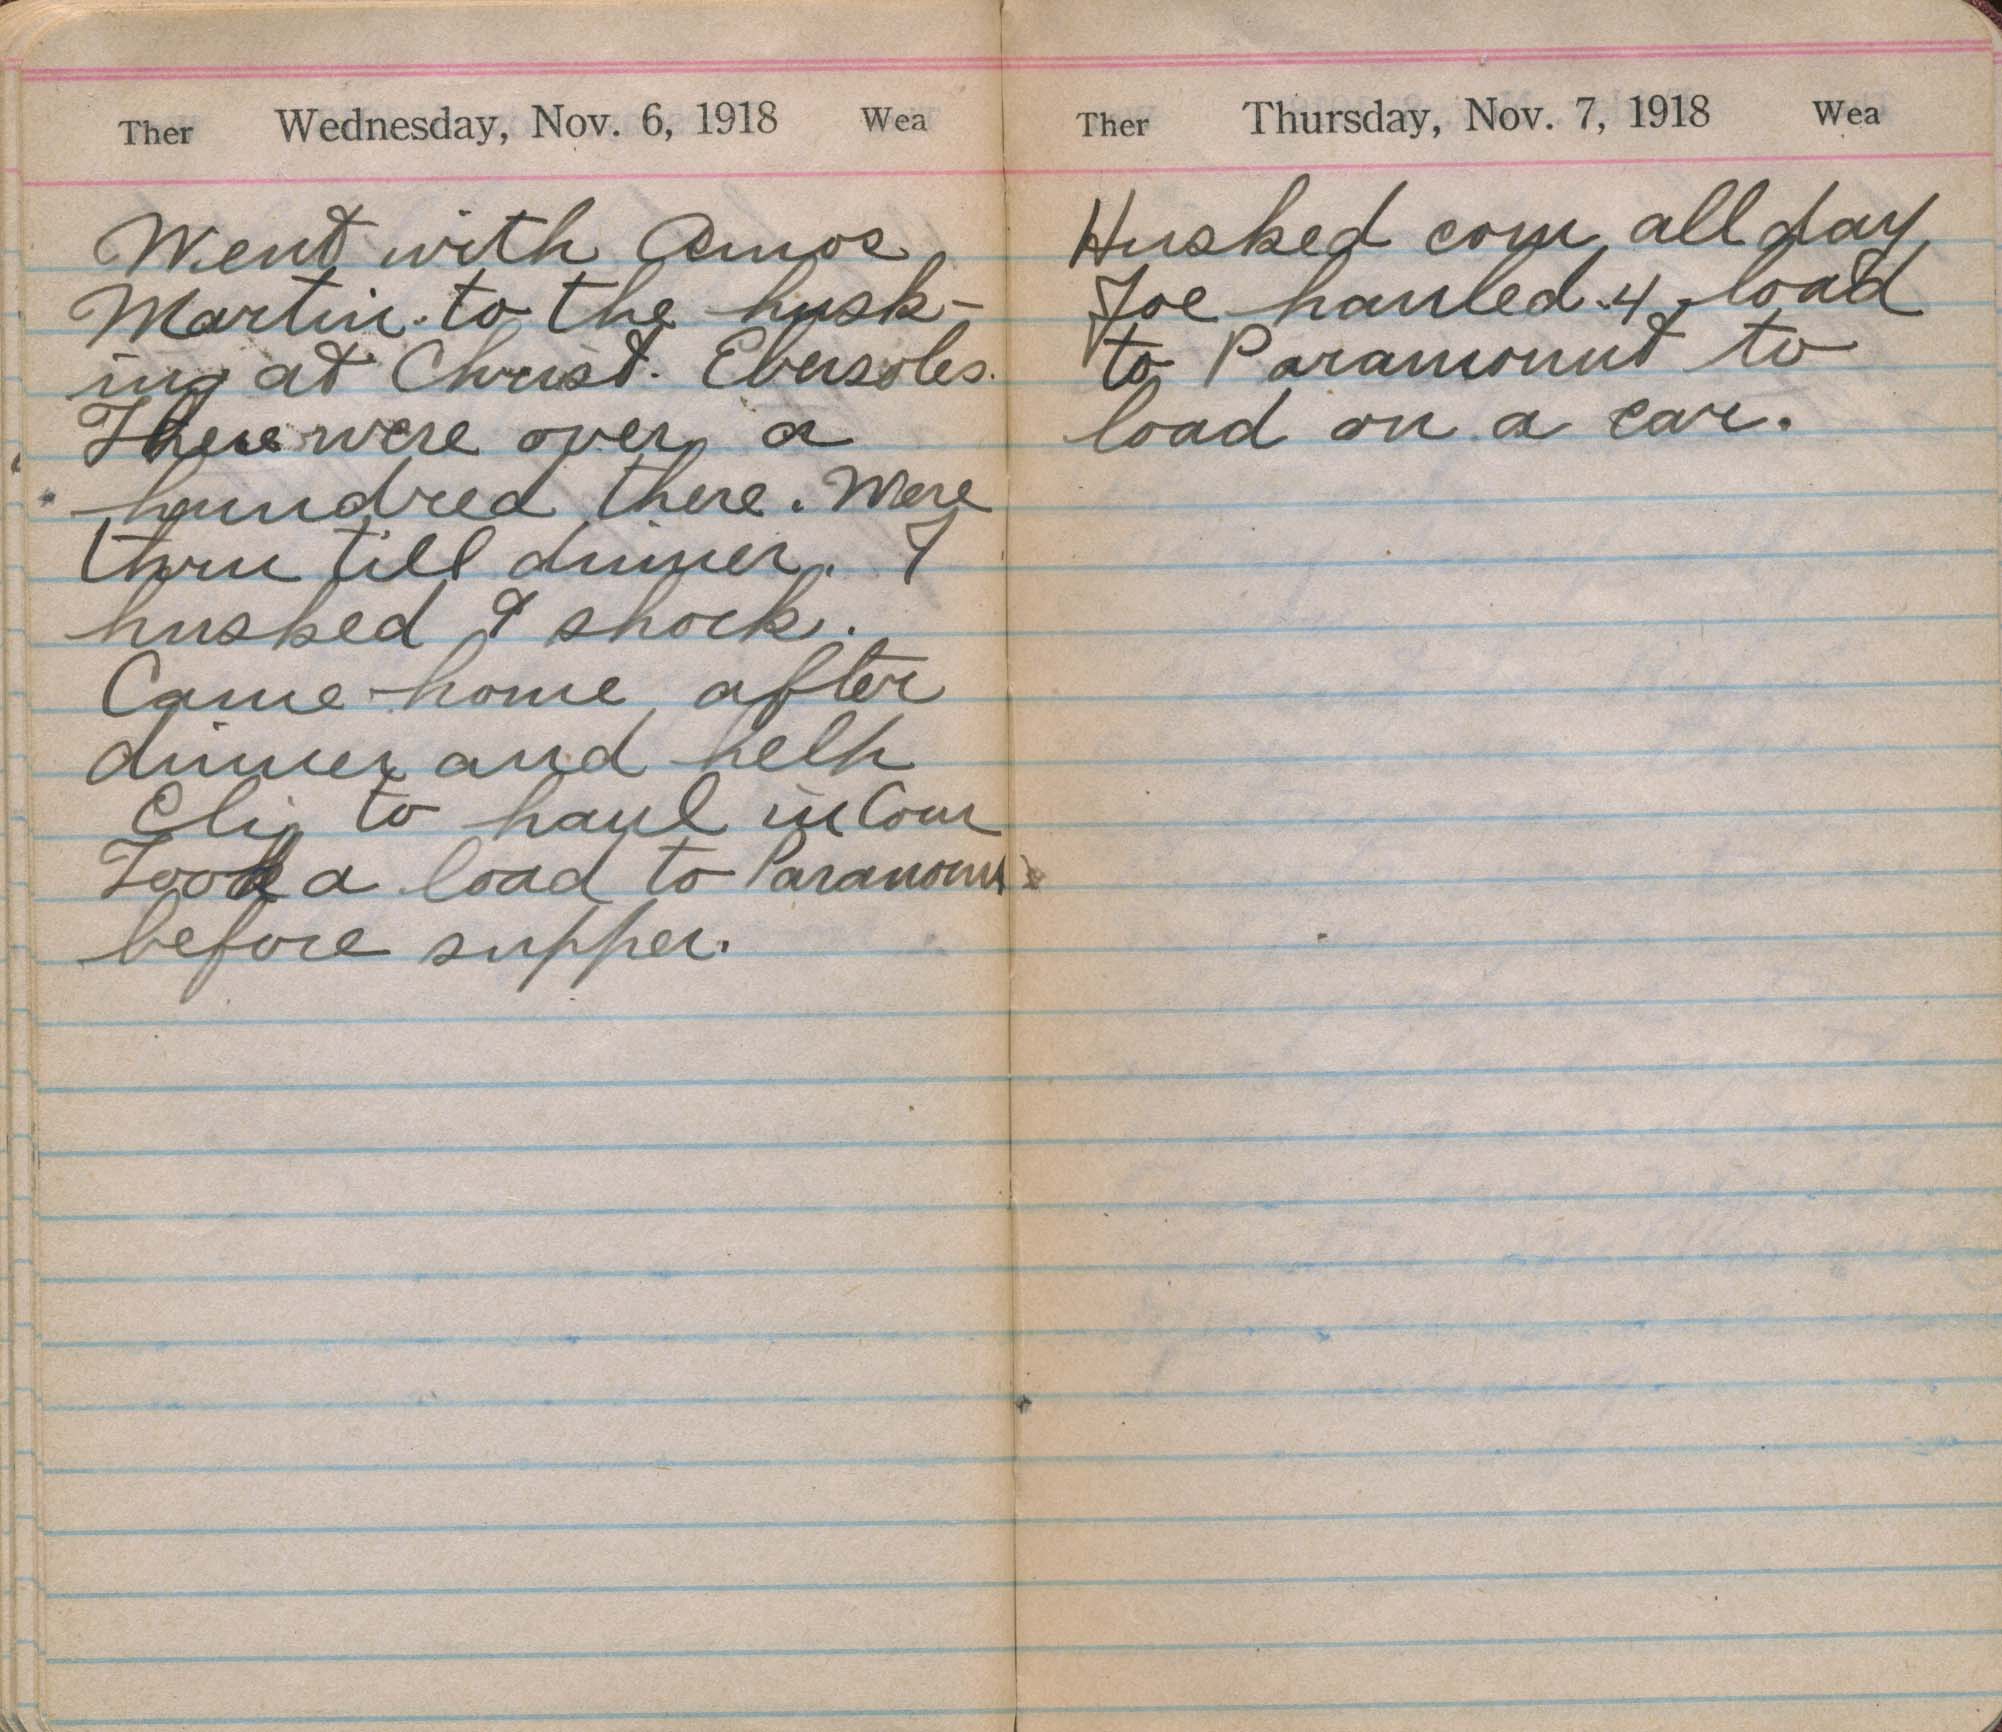 Ther Wednesday, Nov. 6, 1918 Wea
Went with Amos
Martin to the husk-
ing at Christ. Ebersoles.
There were over a
hundred there. Were
thru till dinner. I
husked shock.
Came home after
dinner and help
Eli to haul in Corn
Took a load to Paramount
before supper.
Ther Thursday, Nov. 7, 1918 Wea
Husked corn all day
Joe hauled 4 load
to Paramount to
load on a car.